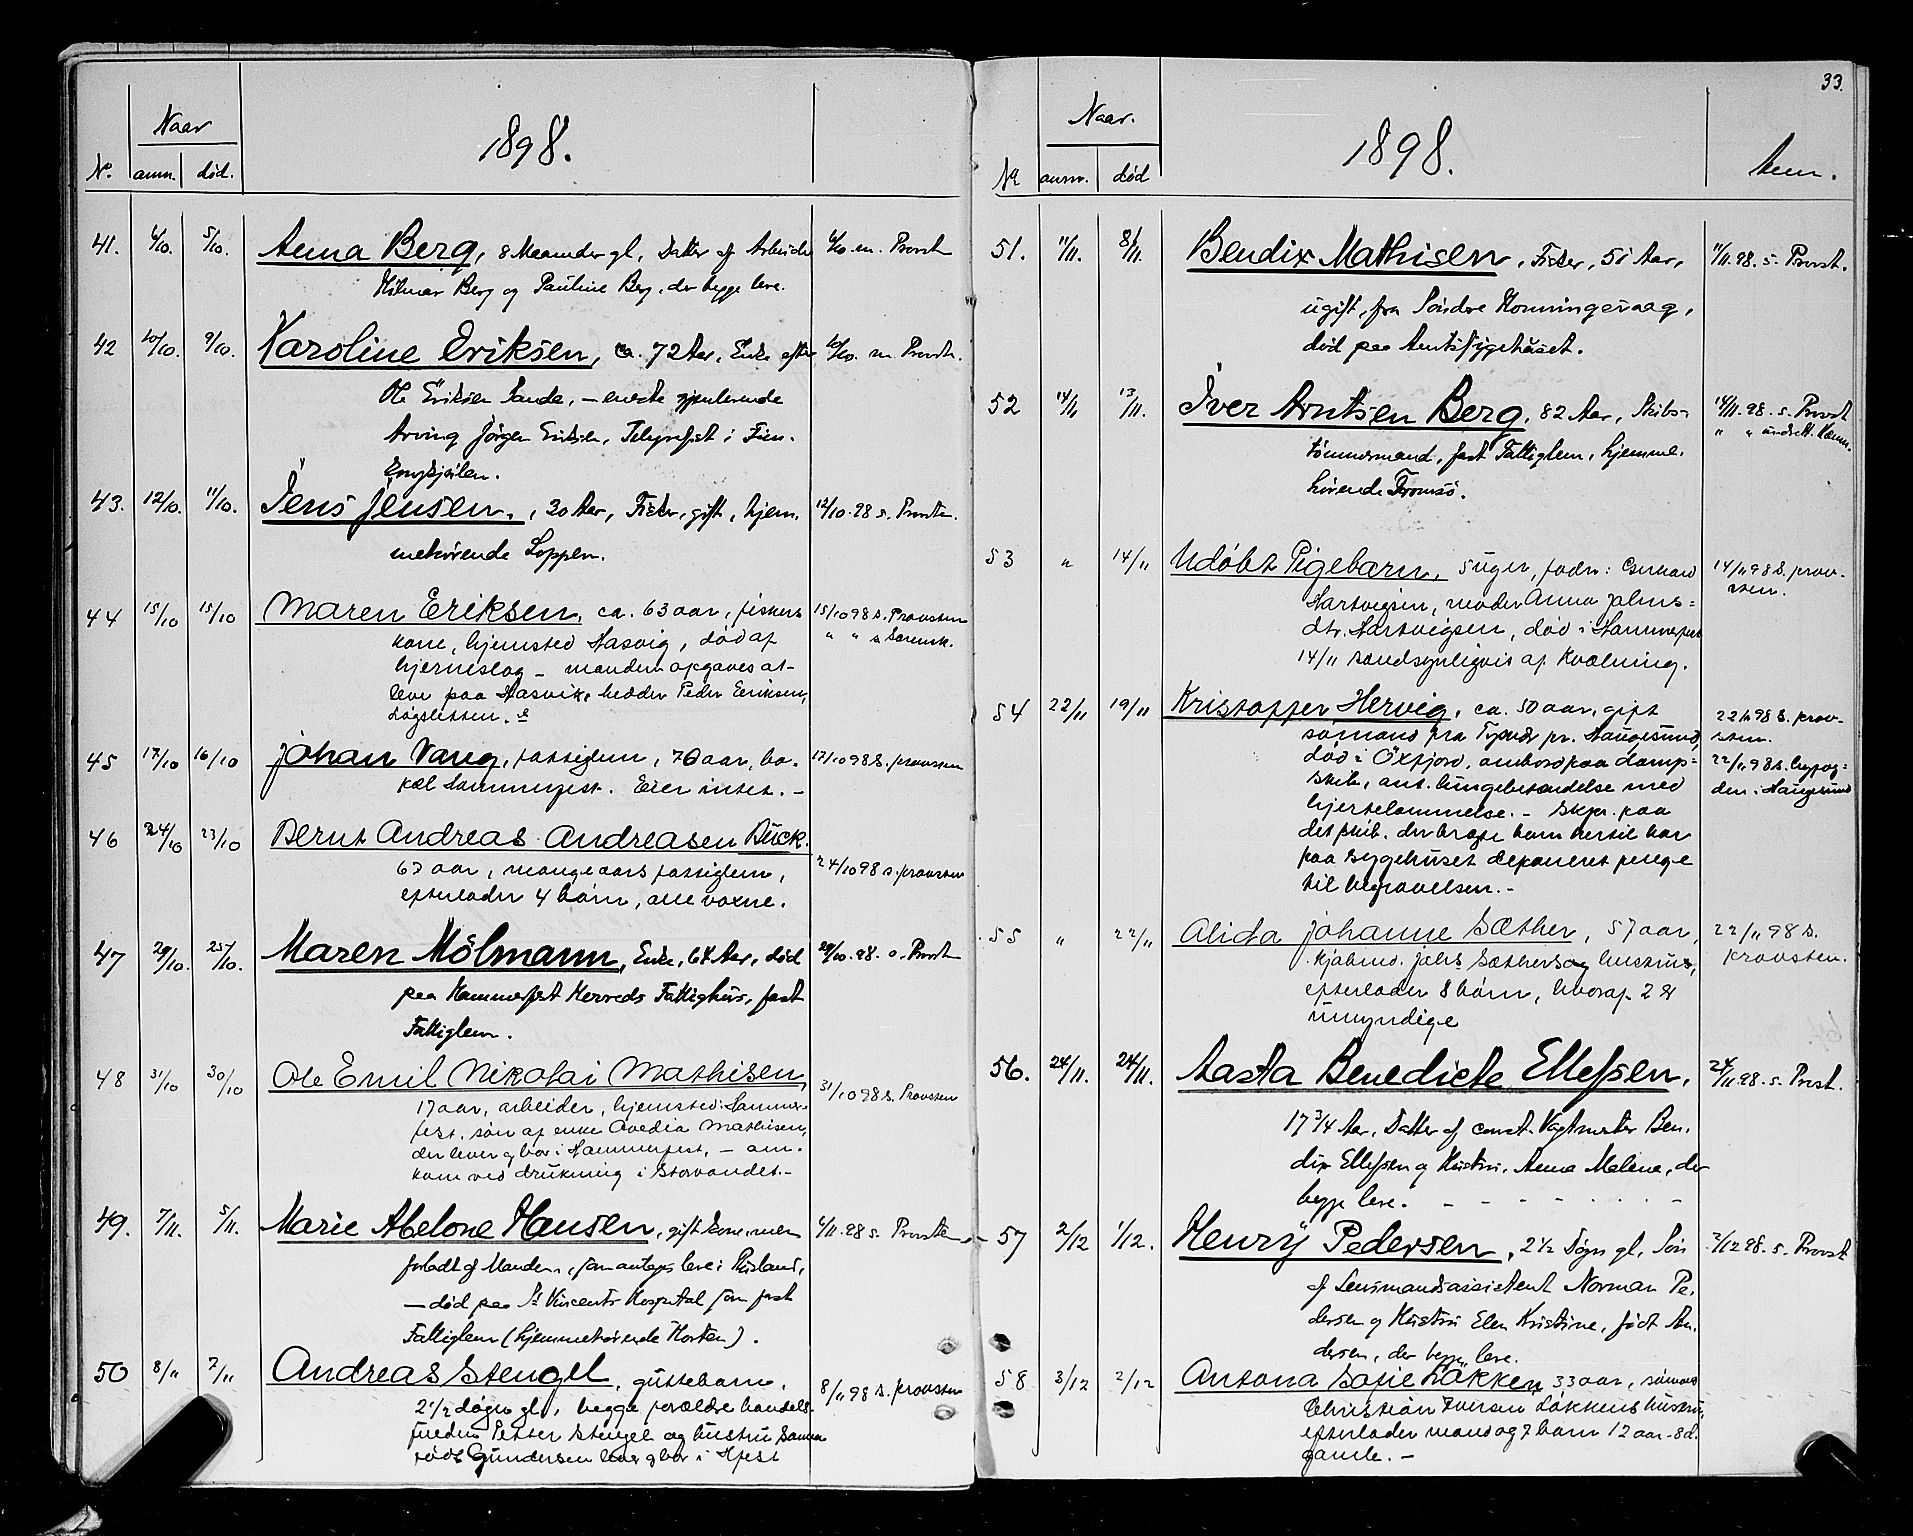 Naar
1898.
No. anm. død.
41. 6/10. 5/10. Anna Berg, 8 Maaneder gl, Datter af Arbeider 6/10. m. Provst
Hilmar Berg og Pauline Berg, der begge leve.
42 10/10. 9/10. Karoline Eriksen, ca. 72 Aar, Enke efter 10/10. m Provst.
Ole Eriksen Sande, – eneste gjenlevende
Arving Jörgen Eriksen, Telegrafist i Fin-
kongkjeilen.
43. 12/10. 11/10. Jens Jensen, 30 Aar, Fisker, gift, hjem- 12/10. 98 s. Provsten.
mehörende Loppen.
44 15/10 15/10 Maren Eriksen, ca. 63 aar, fiskers 15/10 98 s. Provsten
kone, hjemsted Hasvig, död af " " s Sorensk.
hjerneslag – manden opgaves at
leve paa Hasvik, hedder Peder Eriksen,
45 17/10 16/10 Johan Vang, fattiglem, 70 aar, bo- 17/10 98 s. provsten
pæl Hammerfest. Eier intet. –
46 24/10 23/10 Bernt Andreas Andreasen Buck.
63 aar, mangeaars fattiglem, 24/10 98 s. provsten
efterlader 4 börn, alle voxne.
47 29/10. 25/10. Maren Mölmann, Enke, 64 Aar, död 29/10. 98. s. Provst
paa Hammerfest Herreds Fattighus, fast
Fattiglem.
48 31/10 30/10 Ole Emil Nikolai Mathisen, 31/10 98 s. Provsten
17 aar, arbeider, hjemsted: Hammer-
fest, sön af enke Avedia Mathisen,
der lever og bor i Hammerfest, – om-
kom ved drukning i Storvandet. –
49. 7/11. 5/11. Marie Abelone Hansen, gift Kone, men 6/11. 98 s. Provsten
forladt af Manden, som antages leve i Rusland,
– död paa St Vincents Hospital som fast
Fattiglem (hjemmehörende Horten).
50 8/11 7/11 Andreas Stengel, guttebarn, 8/11 98 s. provsten
2 1/2 døgn gl, begge forældre handels-
Petter Stengel og hustru
född Gundersen lever og bor i Hfest
33.
Naar.
1898.
No anm. død Anm.
51. 11/11. 8/11. Bendix Mathisen, Fisker, 51 Aar, 11/11. 98. s. Provst.
ugift, fra Söndre Honningsvaag,
död paa Amtssygehuset.
52 14/11 13/11. Iver Arntsen Berg, 82 Aar, Skibs- 14/11. 98. s. Provst
tömmermand, fast Fattiglem, hjemme- " " undrett.
hörende Tromsö.
53 " 14/11 Udöbt Pigebarn, 5 uger, fader: Gerhard 14/11 98 s. prov-
Hartvigsen, moder Anna Johns= sten.
dtr. Hartvigsen, död i Hammerfest
14/11 sandsynligvis af Kvælning.
54 22/11 19/11 Kristoffer Hervig, ca. 50 aar, gift 22/11 98 s. prov-
sömand fra pr. Haugesund, sten.
död i Öxfjord, ombord paa damp= 22/11 98 s. byfog=
skib, ant. lungebetændelse med den i Haugesund
hjertelammelse. – Skpr. paa
det skib. der bragte ham hertil har
paa sygehuset deponeret penge
til begravelsen. –
55 " 22/11 Alida Johanne Sæther, 57 aar, 22/11 98 s.
kjöbmd. Johs Sæthers hustru, provsten.
efterlader 8 börn, hvoraf 2 er
umyndige
56. 24/11. 24/11. Aasta Benedicte Ellefsen, 24/11 98. s. Provst.
17 3/4 Aar, Datter af const. Vagtmester Ben-
dix Ellefsen og Hustru, Anna Malene, der
begge leve. – – – – – –
57 2/12 1/12. Henry Pedersen, 2 1/2 Dögn gl, Sön 2/12 98. s. Provst
af Lensmandsassistent Norman Pe-
dersen og Hustru Elen Kristine, født An-
dersen, der begge leve.
58 3/12 2/12 Antona Sofie Løkken, 33 aar, sömand
Christian Iversen Løkkens hustru,
efterlader mand og 7 barn 12 aar – 8 d.
gamle. –